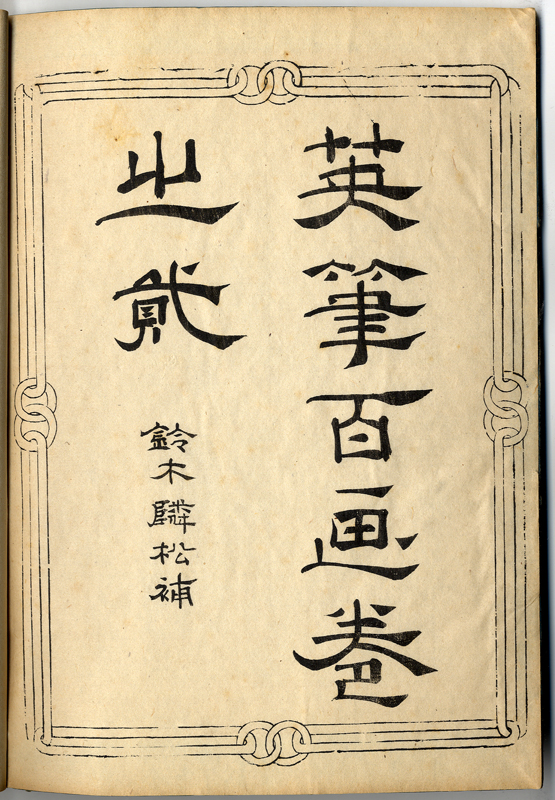 英筆百画巻
之貳
鈴木驎松補